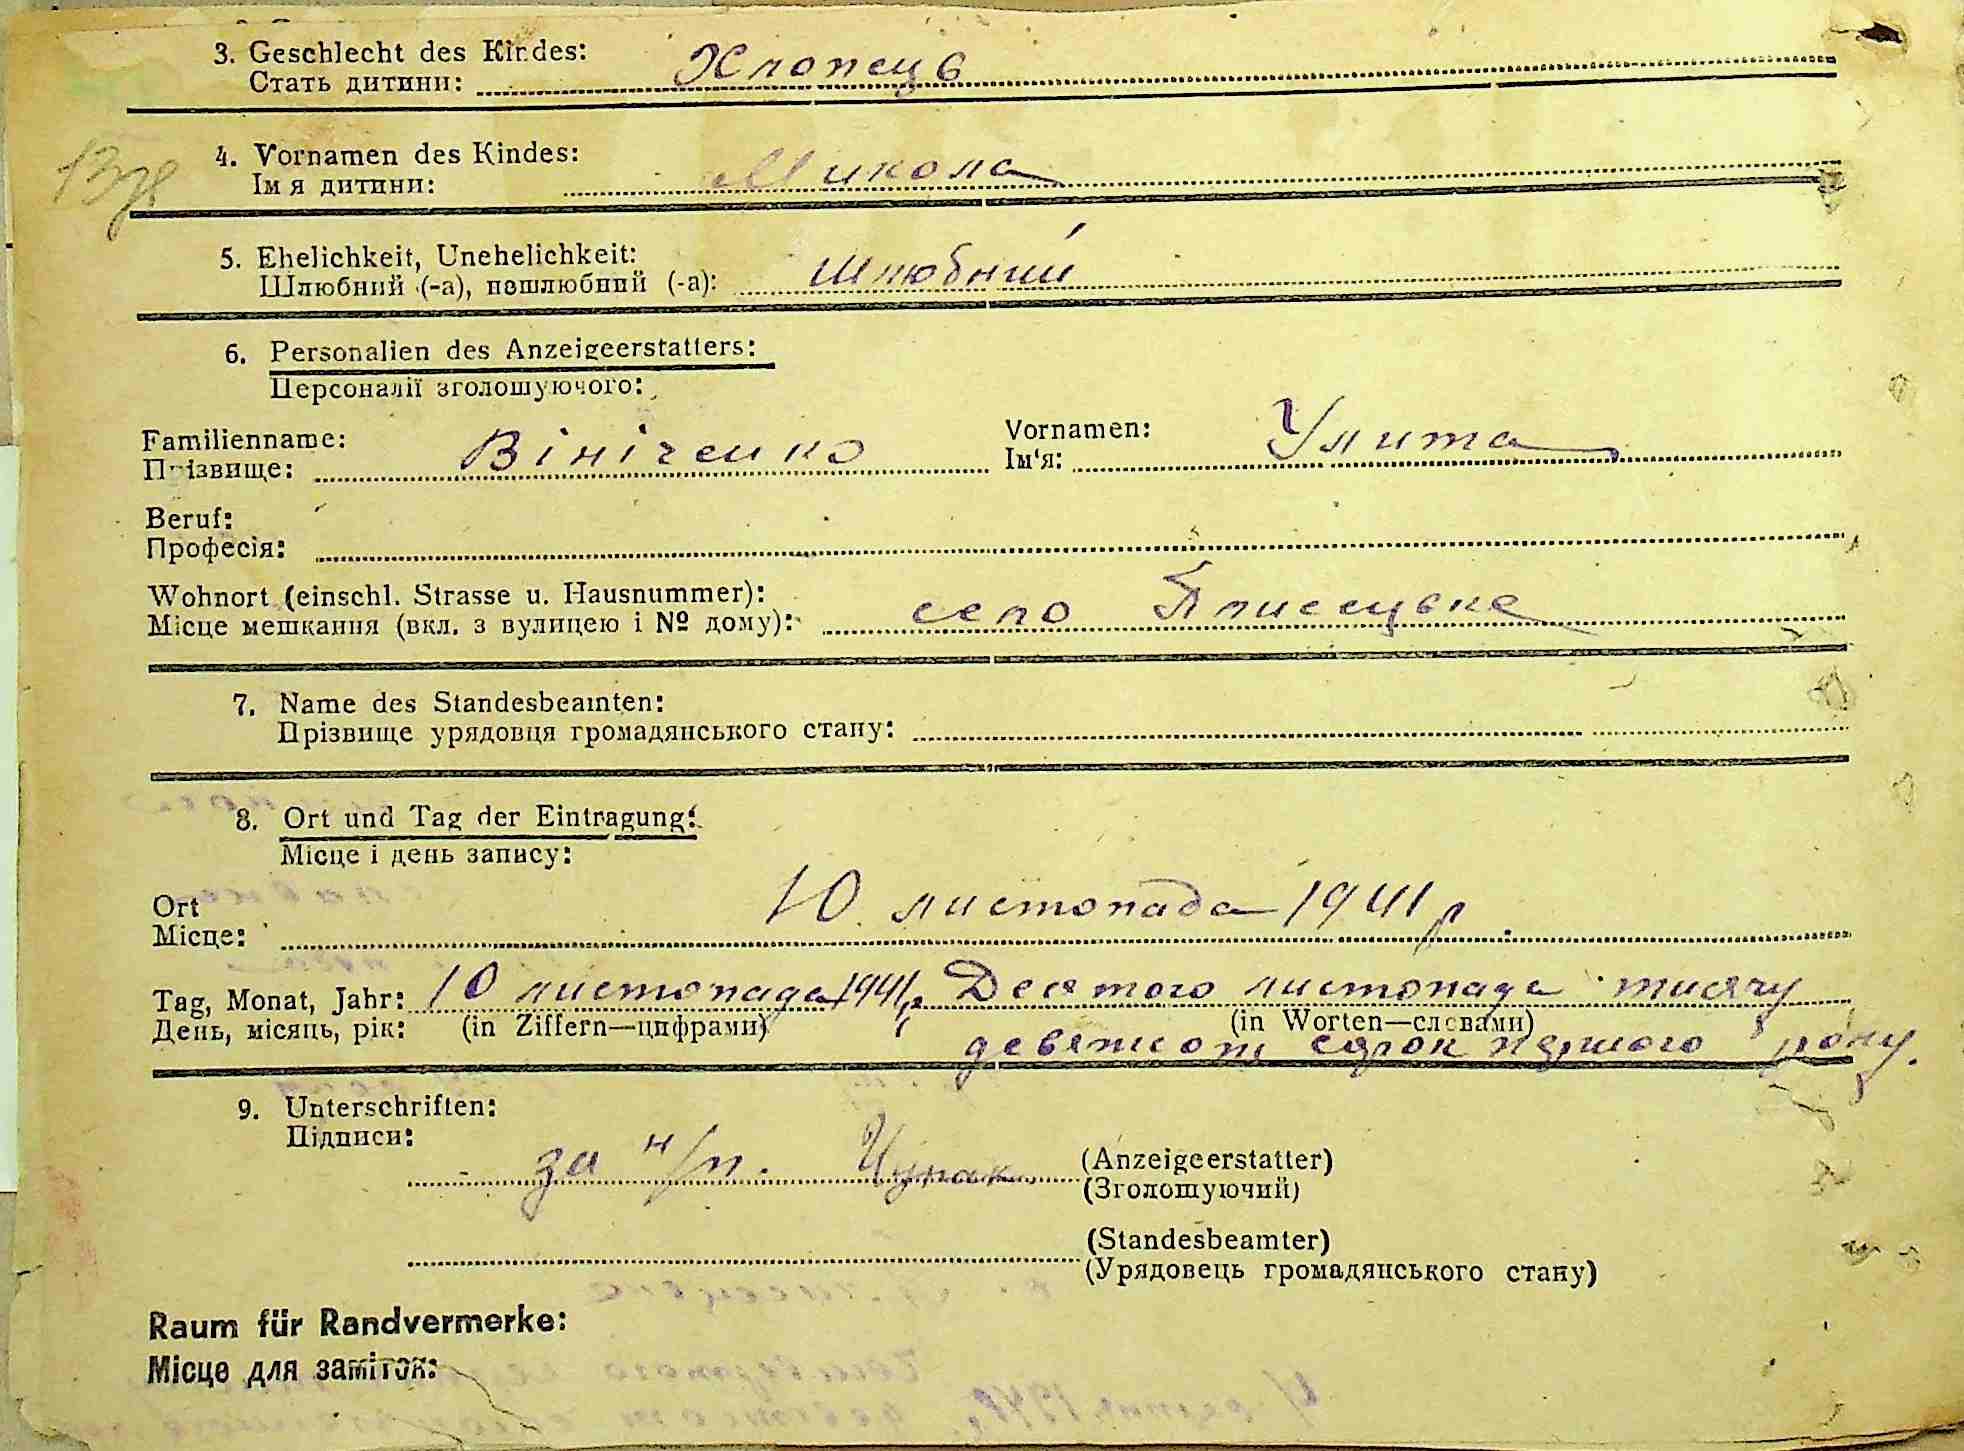 3. Geschlecht des Kindes:
Стать дитини: Хлопець
4. Vornamen des Kindes:
Ім я дитини: Микола
5. Ehelichkeit, Unehelichkeit:
Шлюбний (-а), нешлюбний (-а): Шлюбний
6. Personalien des Anzeigeerstatters:
Персоналії зголошуючого:
Familienname: Вініченко Vornamen: Улита
Прізвище: Ім'я:
Beruf:
Професія:
Wohnort (einschl. Strasse u. Hausnummer):
Місце мешкання (вкл. з вулицею і № дому): село Плисецьке
7. Name des Standesbeamten:
Прізвище урядовця громадянського стану:
8. Ort und Tag der Eintragung:
Місце і день запису:
Ort 10 листопада 1941 р
Місце:
Tag, Monat, Jahr: 10 листопада 1941 р. Десятого листопада тисячу
День, місяць, рік: (in Ziffern—цифрами) (in Worten—словами)
девятсот сорок першого року.
9. Unterschriften:
Підписи:
за н/п. (Anzeigeerstatter)
(Зголошуючий)
(Standesbeamter)
(Урядовець громадянського стану)
Raum für Randvermerke:
Місце для заміток: